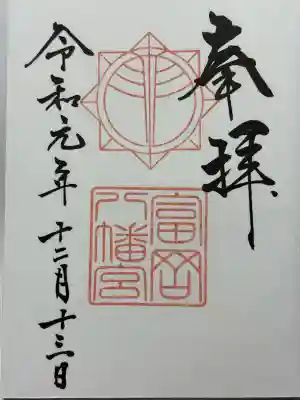 奉拝
富岡
八幡宮
令和元年十二月十三日